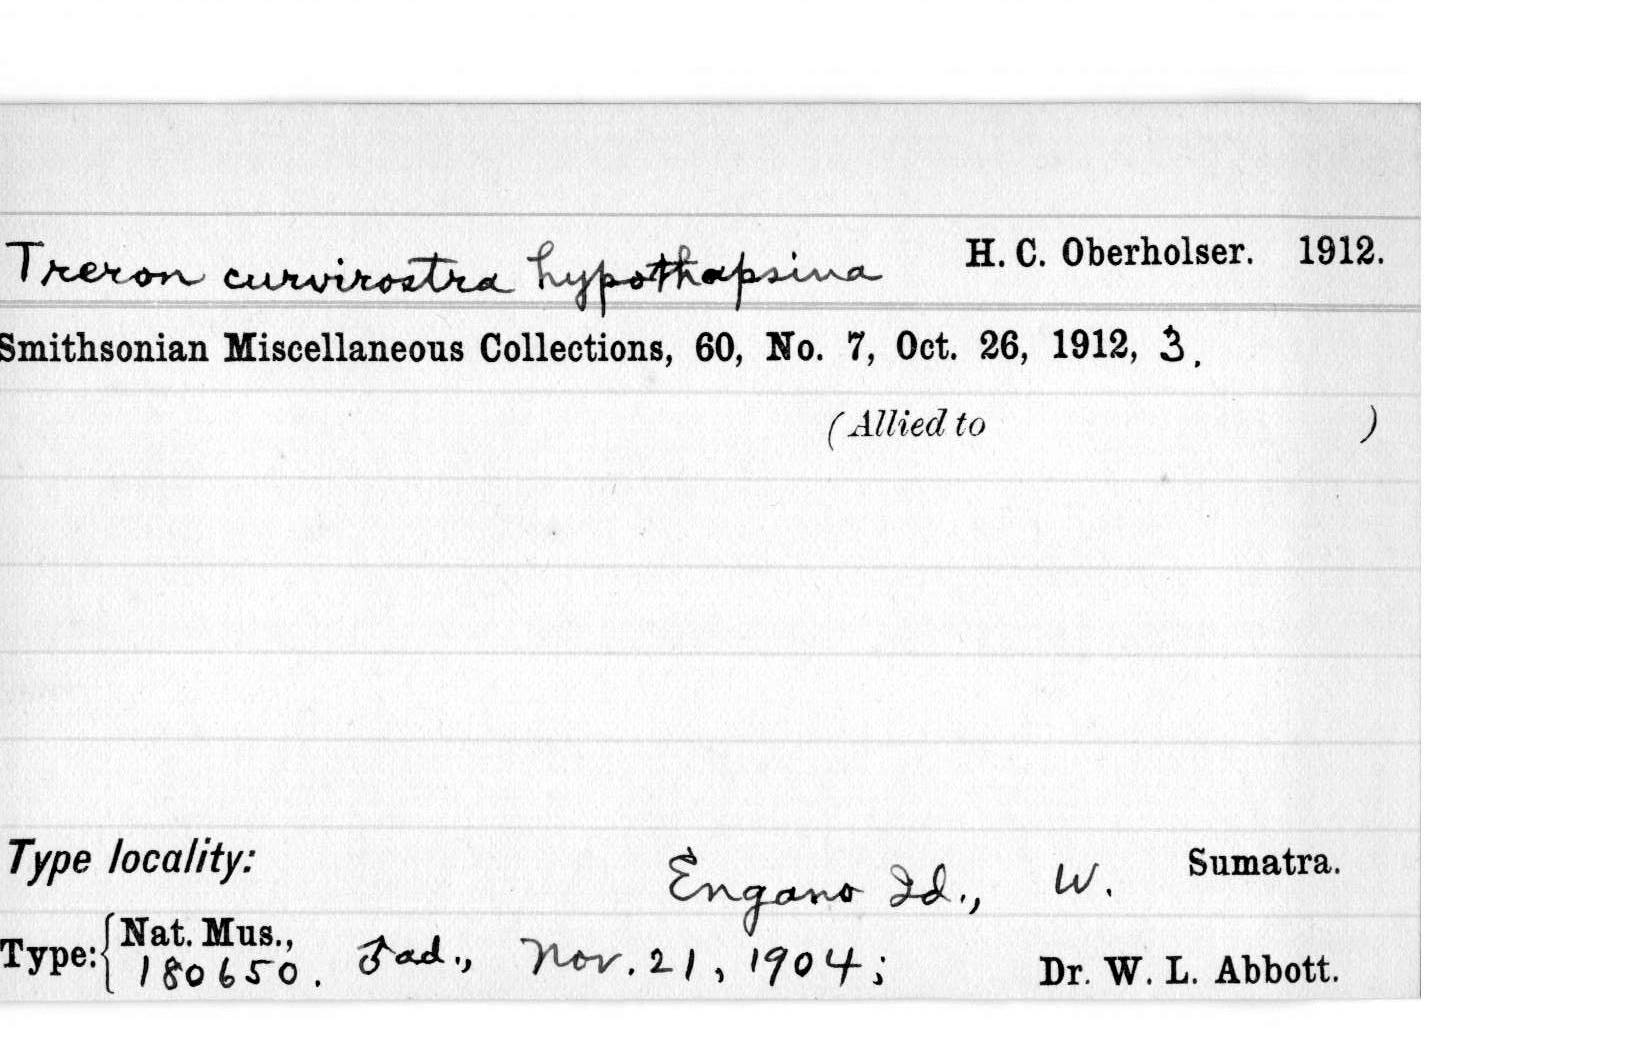 Treron curvirostra hypothapsina H. C. Oberholser. 1912.
Smithsonian Miscellaneous Collections, 60, No. 7, Oct. 26, 1912, 3.
(Allied to )
Type locality: Engano Id., W. Sumatra.
Type: { Nat. Mus., 180650. ♂ad., Nov. 21, 1904; Dr. W. L. Abbott.